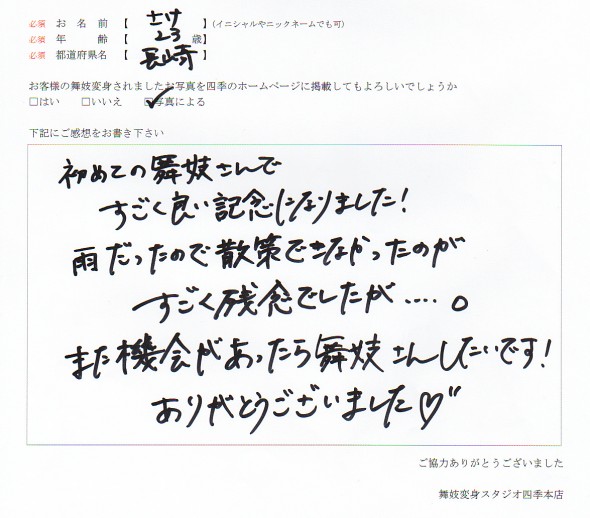 必須 お名前 【 さけ 】(イニシャルやニックネームでも可)
必須 年齢 【 23 歳】
必須 都道府県名 【 長崎 】
お客様の舞妓変身されましたお写真を四季のホームページに掲載してもよろしいでしょうか
□はい □いいえ ☑写真による
下記にご感想をお書き下さい
初めての舞妓さんで
すごく良い記念になりました!
雨だったので散策できなかったのが
すごく残念でしたが....。
また機会があったら舞妓さんしたいです!
ありがとうございました♡"
ご協力ありがとうございました
舞妓変身スタジオ四季本店